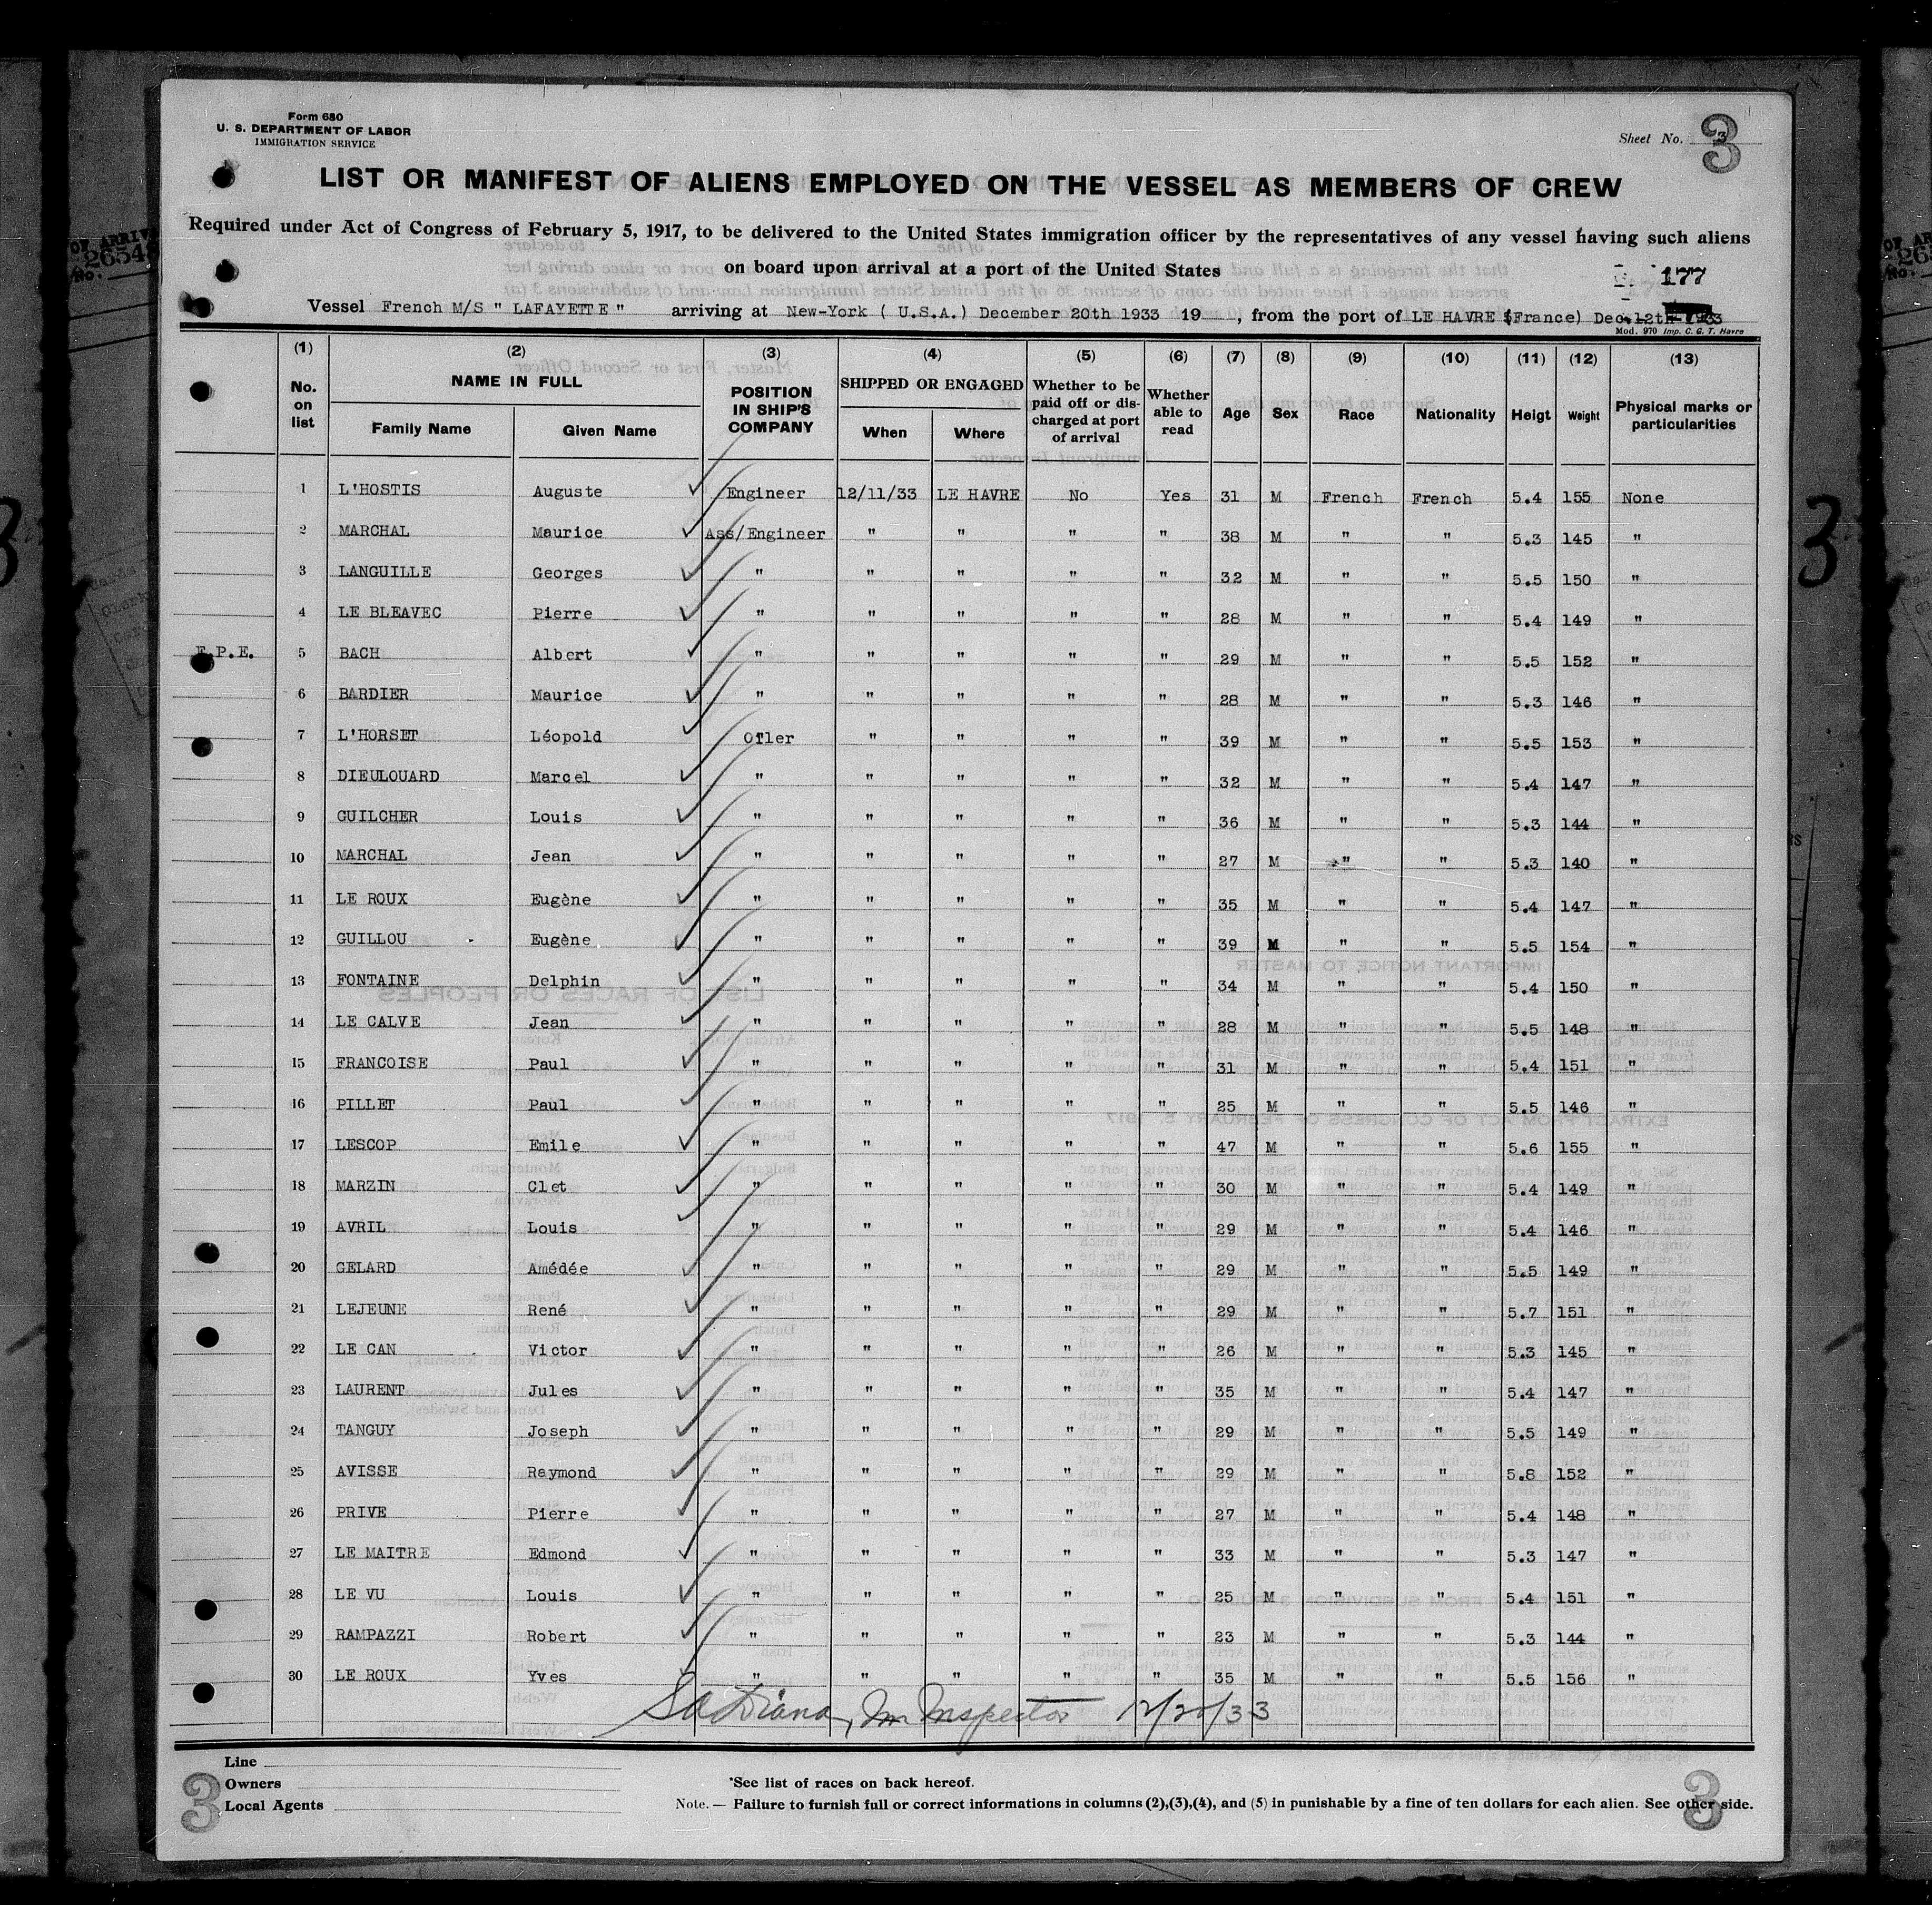 Form 680
U. S. DEPARTMENT OF LABOR
IMMIGRATION SERVICE
Sheet No. 3
3
LIST OR MANIFEST OF ALIENS EMPLOYED ON THE VESSEL AS MEMBERS OF CREW
Required under Act of Congress of February 5, 1917, to be delivered to the United States immigration officer by the representatives of any vessel having such aliens
on board upon arrival at a port of the United States
177
Vessel French M/S " LAFAYETTE " arriving at New-York ( U.S.A.) December 20th 1933 19 , from the port of LE HAVRE (France) Dec.12th 1933
Mod. 970 Imp. C. G. T. Havre
(1) (2) (3) (4) (5) (6) (7) (8) (9) (10) (11) (12) (13)
No. on list NAME IN FULL Family Name Given Name POSITION IN SHIP'S COMPANY SHIPPED OR ENGAGED When Where Whether to be paid off or discharged at port of arrival Whether able to read Age Sex Race Nationality Heigt Weight Physical marks or particularities
1 L'HOSTIS Auguste Engineer 12/11/33 LE HAVRE No Yes 31 M French French 5.4 155 None
2 MARCHAL Maurice Ass/Engineer " " " " 38 M " " 5.3 145 "
3 LANGUILLE Georges " " " " " 32 M " " 5.5 150 "
4 LE BLEAVEC Pierre " " " " " 28 M " " 5.4 149 "
P.E. 5 BACH Albert " " " " " 29 M " " 5.5 152 "
6 BARDIER Maurice " " " " " 28 M " " 5.3 146 "
7 L'HORSET Léopold Oiler " " " " 39 M " " 5.5 153 "
8 DIEULOUARD Marcel " " " " " 32 M " " 5.4 147 "
9 GUILCHER Louis " " " " " 36 M " " 5.3 144 "
10 MARCHAL Jean " " " " " 27 M " " 5.3 140 "
11 LE ROUX Eugène " " " " " 35 M " " 5.4 147 "
12 GUILLOU Eugène " " " " " 39 M " " 5.5 154 "
13 FONTAINE Delphin " " " " " 34 M " " 5.4 150 "
14 LE CALVE Jean " " " " " 28 M " " 5.5 148 "
15 FRANCOISE Paul " " " " " 31 M " " 5.4 151 "
16 PILLET Paul " " " " " 25 M " " 5.5 146 "
17 LESCOP Emile " " " " " 47 M " " 5.6 155 "
18 MARZIN Clet " " " " " 30 M " " 5.4 149 "
19 AVRIL Louis " " " " " 29 M " " 5.4 146 "
20 GELARD Amédée " " " " " 29 M " " 5.5 149 "
21 LEJEUNE René " " " " " 29 M " " 5.7 151 "
22 LE CAN Victor " " " " " 26 M " " 5.3 145 "
23 LAURENT Jules " " " " " 35 M " " 5.4 147 "
24 TANGUY Joseph " " " " " 29 M " " 5.5 149 "
25 AVISSE Raymond " " " " " 29 M " " 5.8 152 "
26 PRIVE Pierre " " " " " 27 M " " 5.4 148 "
27 LE MAITRE Edmond " " " " " 33 M " " 5.3 147 "
28 LE VU Louis " " " " " 25 M " " 5.4 151 "
29 RAMPAZZI Robert " " " " " 23 M " " 5.3 144 "
30 LE ROUX Yves " " " " " 35 M " " 5.5 156 "
Im Inspector 12/20/33
Line
Owners
Local Agents
*See list of races on back hereof.
Note. — Failure to furnish full or correct informations in columns (2),(3),(4), and (5) in punishable by a fine of ten dollars for each alien. See other side.
3
3
3